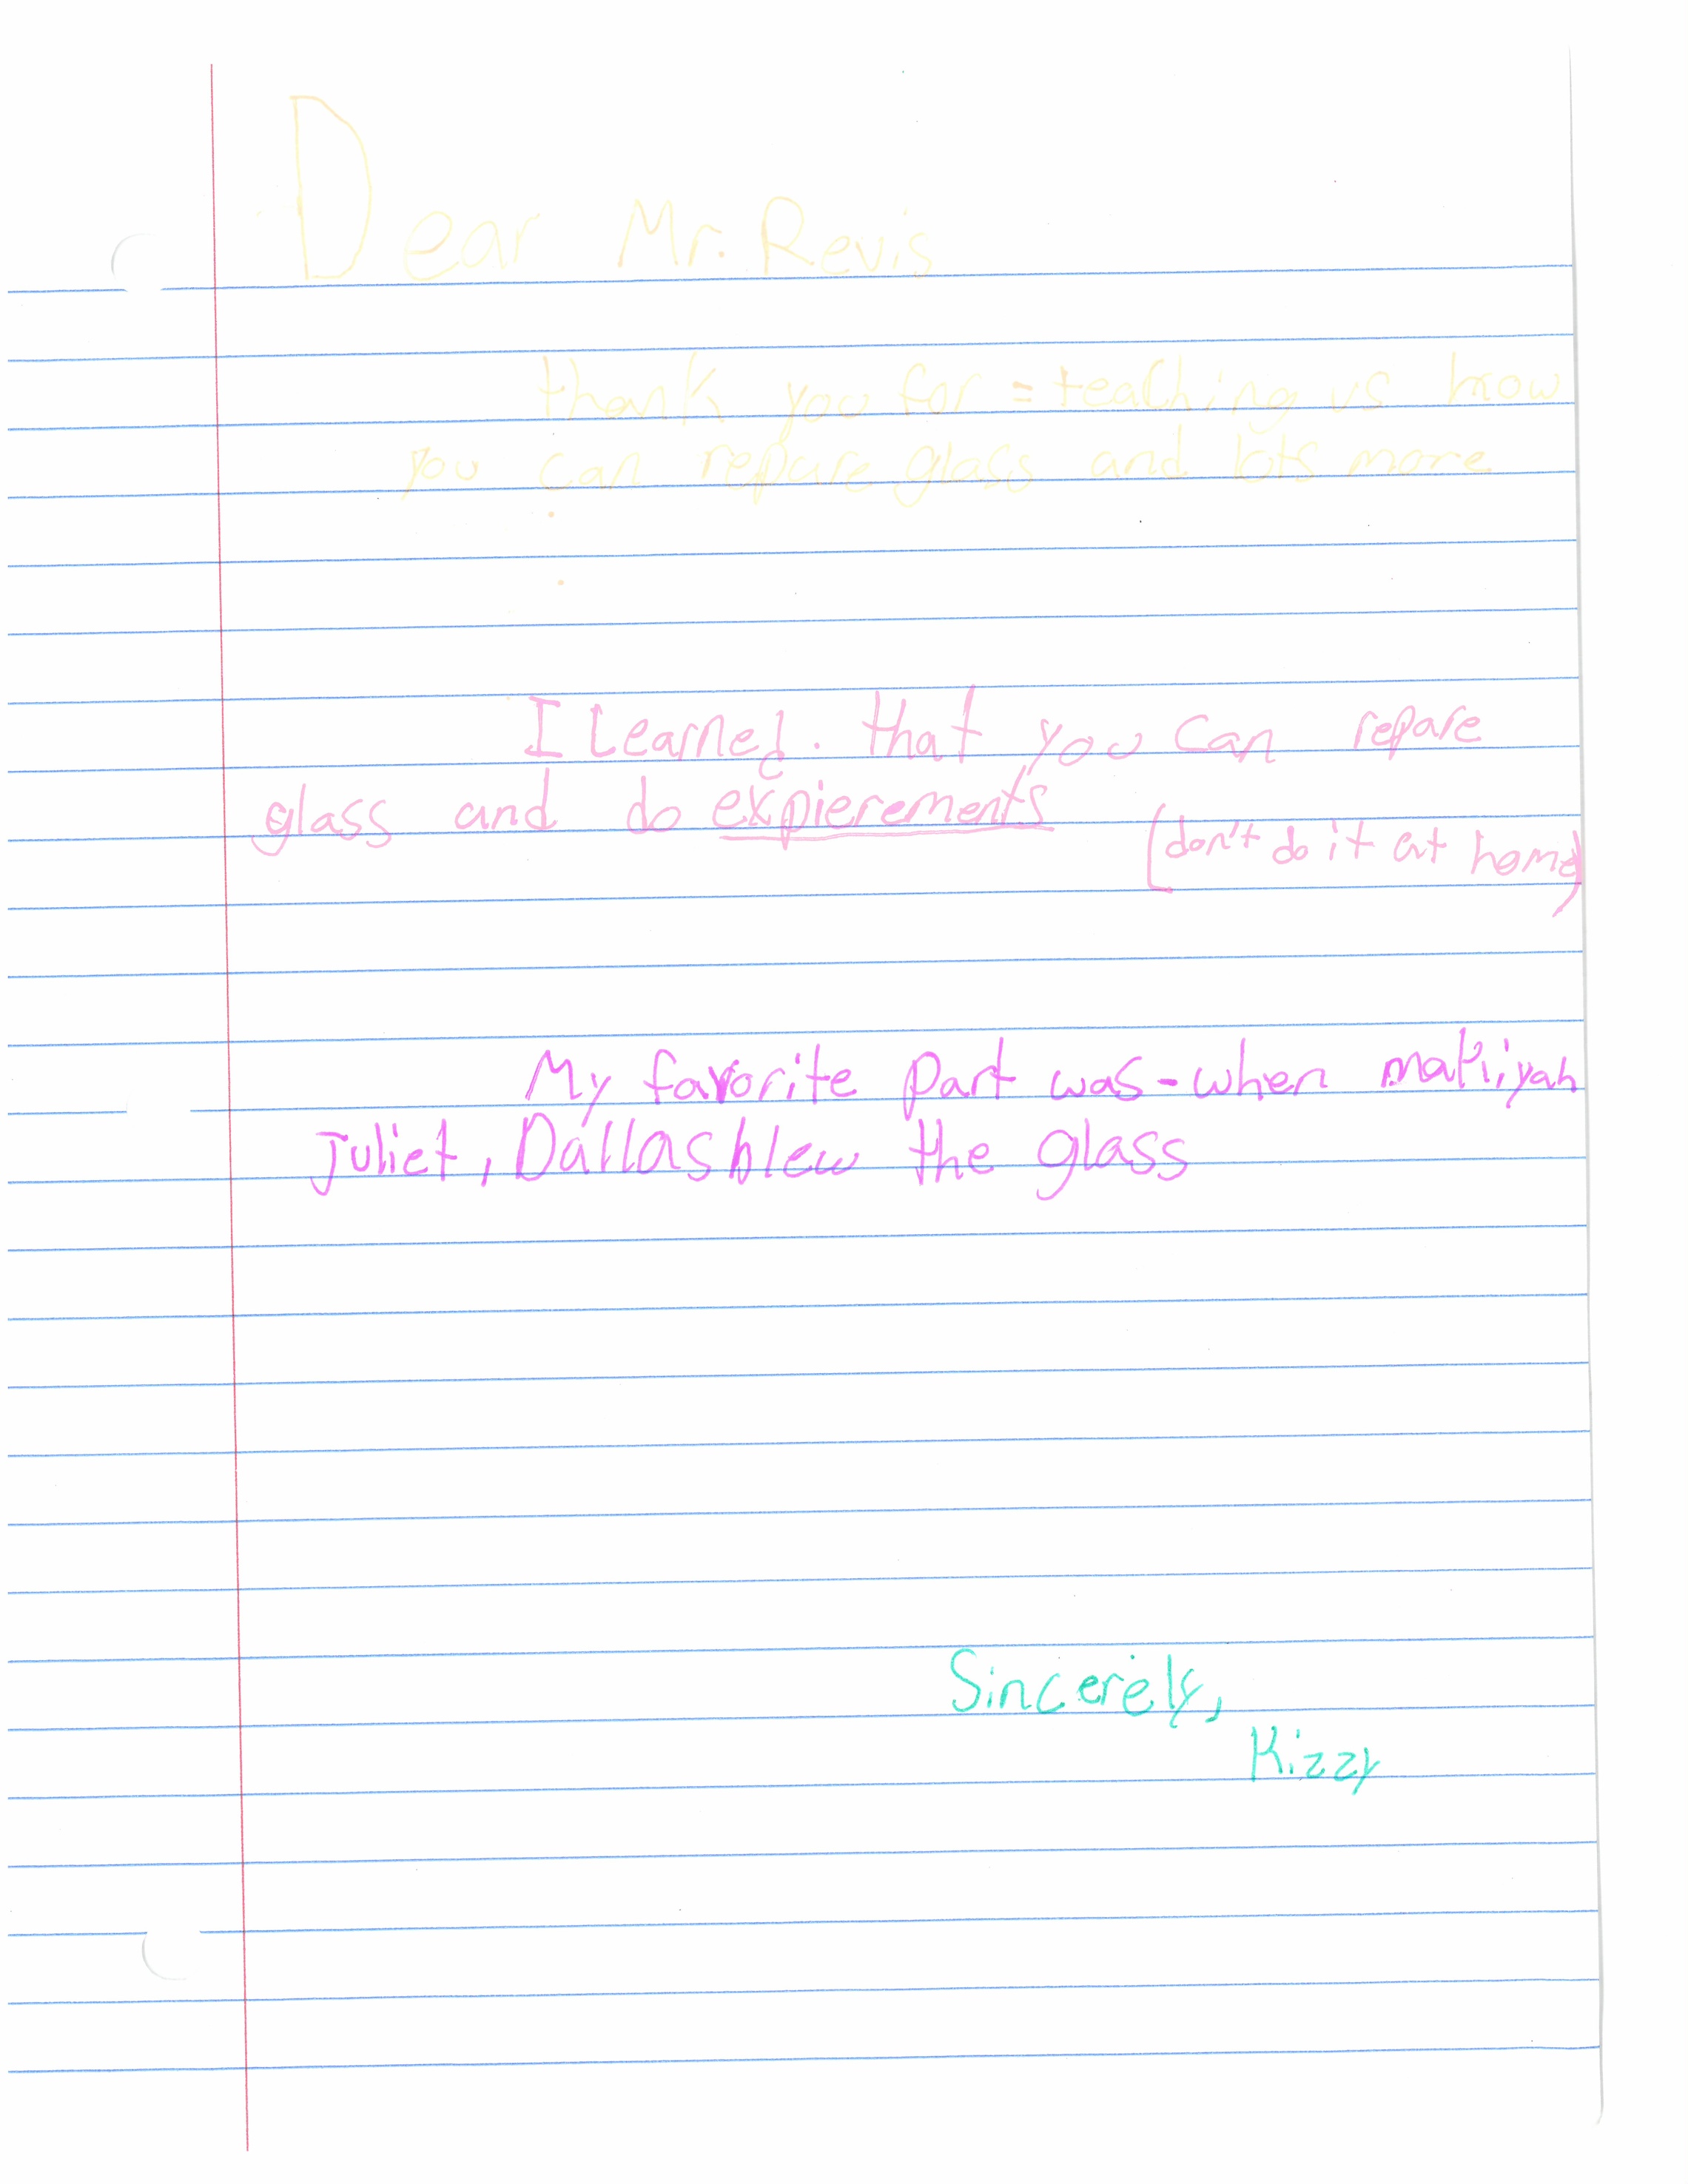 Dear Mr. Revis
thank you for = teaching us how
you can repare glass and lots more
I Learned. that you can repare
glass and do expierements
(don't do it at home)
My favorite part was-when makiyah
juliet, Dallas blew the glass
Sincerely,
Kizzy